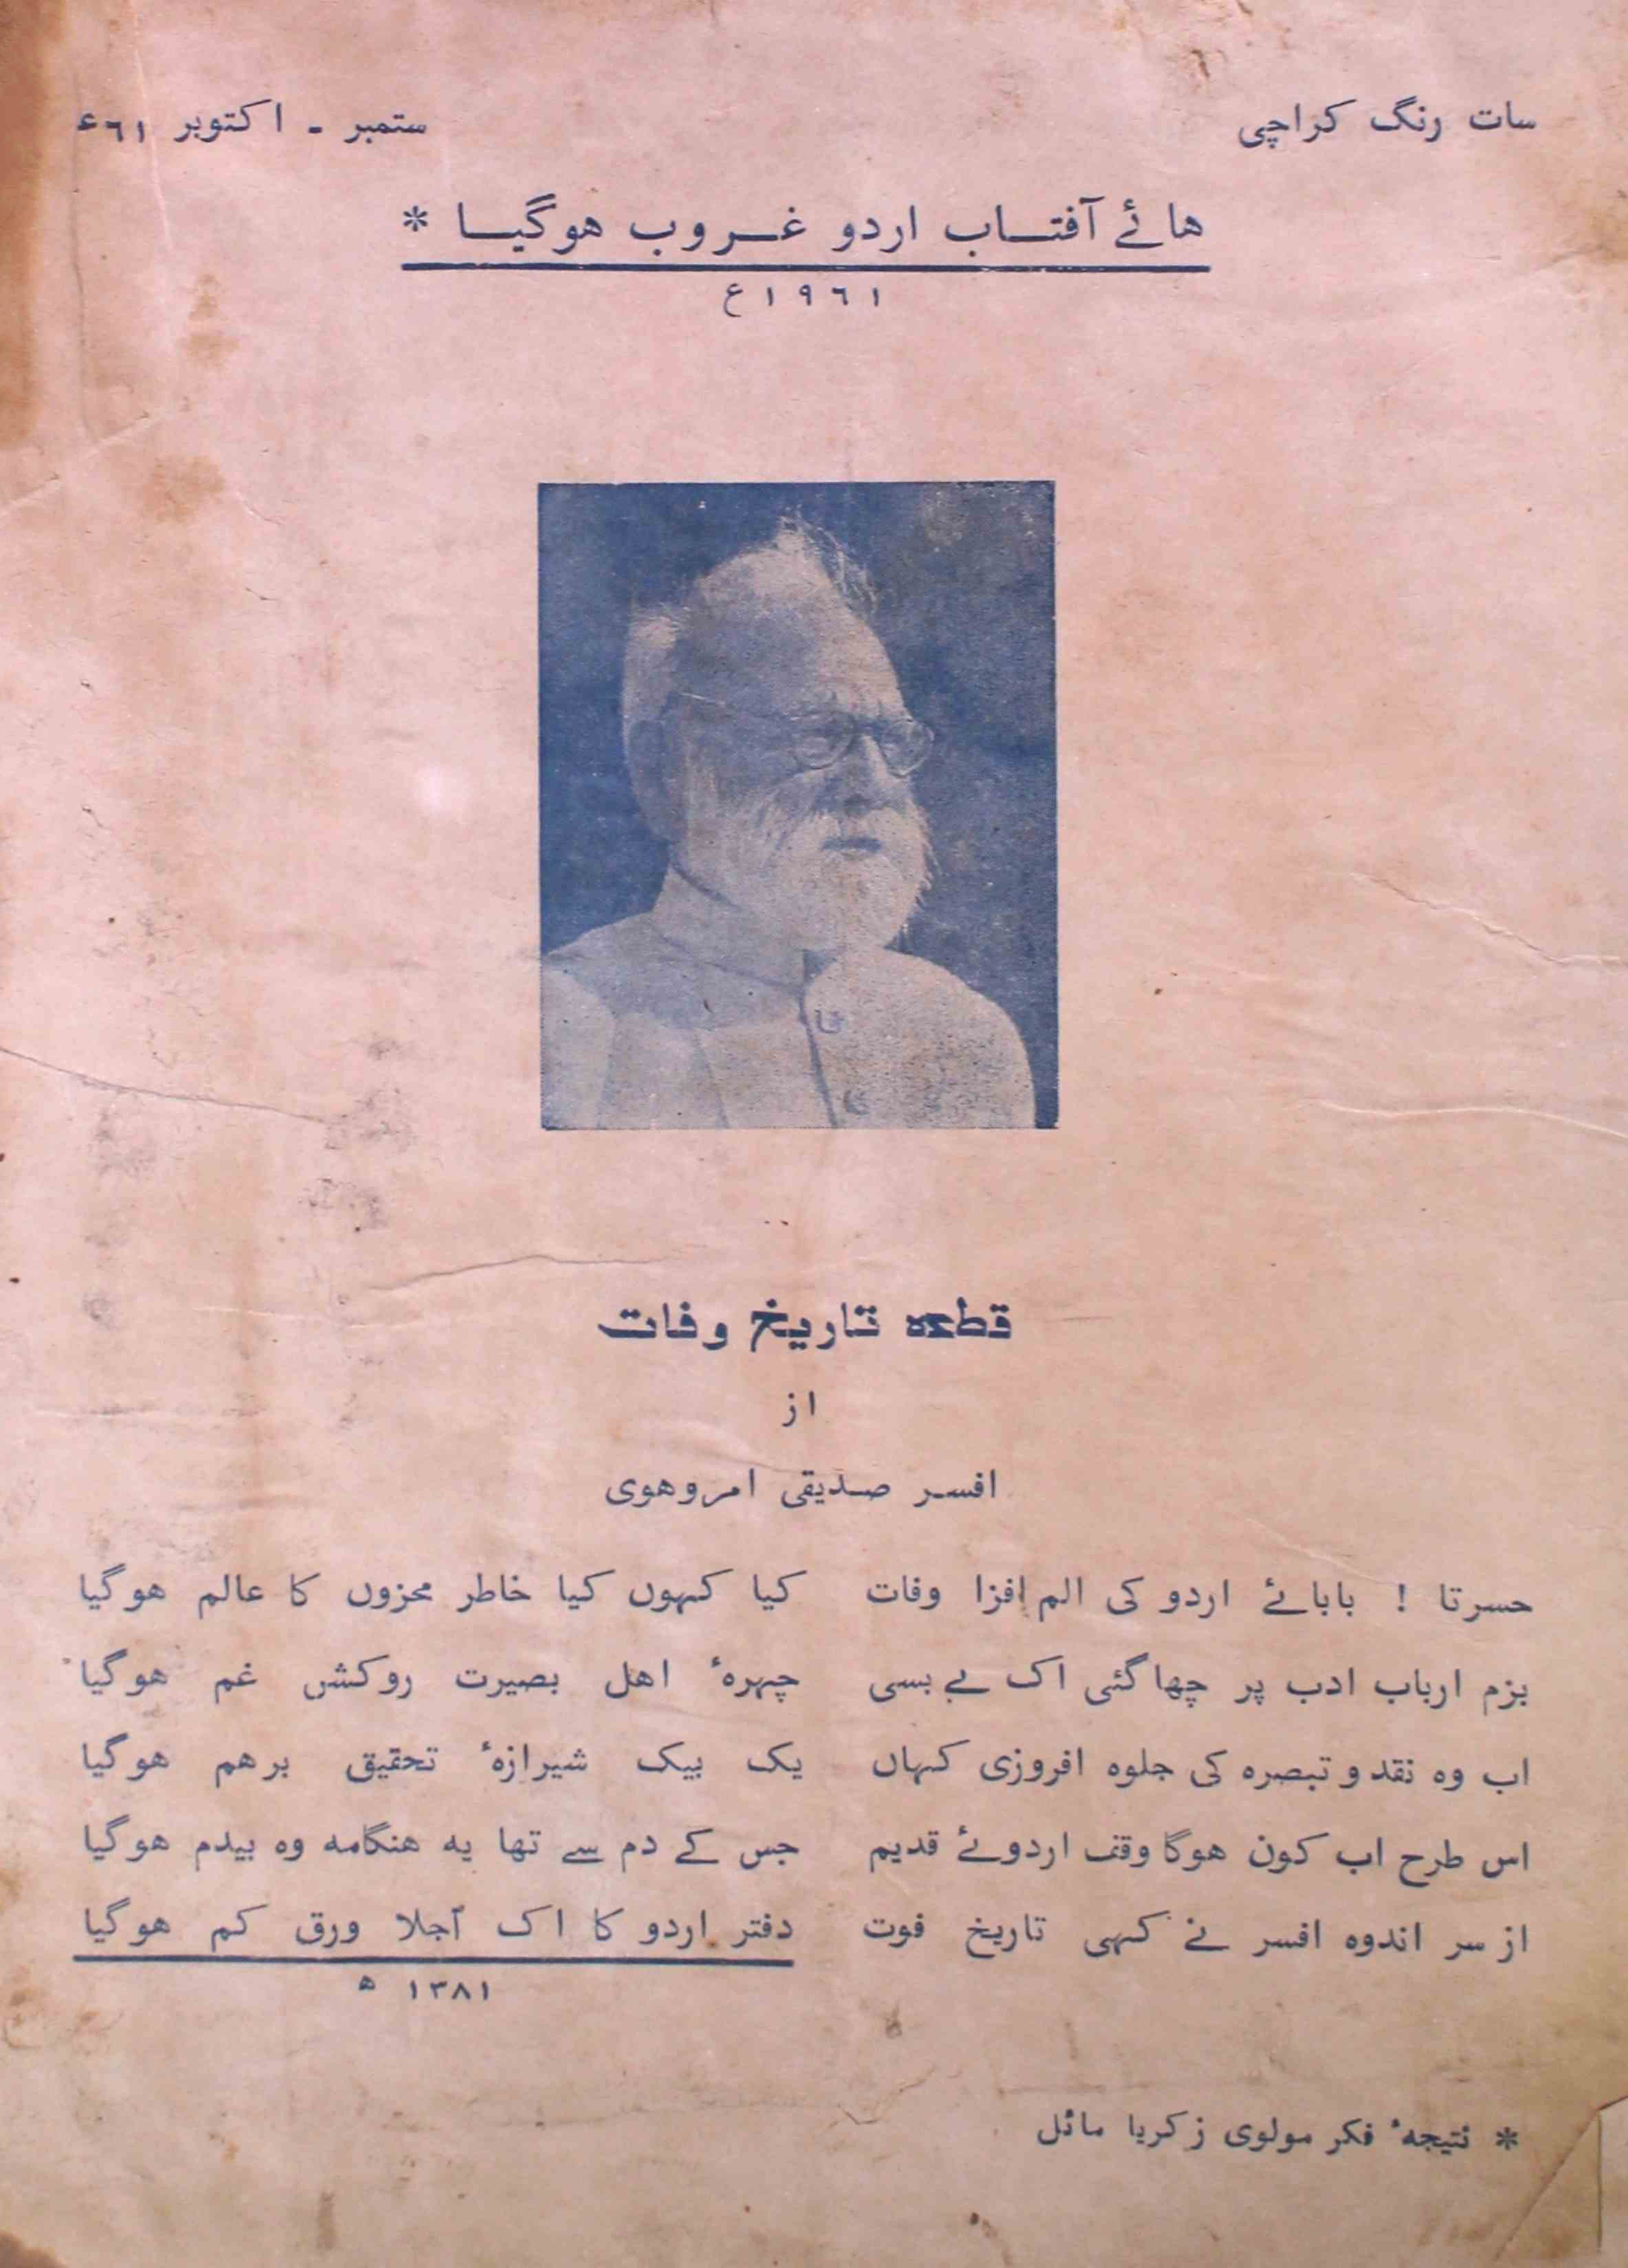 سات رنگ کراچی
ستمبر - اکتوبر ٦١ء
هائے آفتاب اردو غروب هوگیا *
١٩٦١ع
قطعه تاریخ وفات
از
افسر صدیقی امروهوی
حسرتا ! بابائے اردو کی الم افزا وفات کیا کہوں کیا خاطر محزوں کا عالم هوگیا
بزم ارباب ادب پر چھاگئی اک بے بسی چہرهٔ اهل بصیرت روکش غم هوگیا
اب وه نقد و تبصره کی جلوه افروزی کہاں یک بیک شیرازهٔ تحقیق برهم هوگیا
اس طرح اب کون هوگا وقف اردوئے قدیم جس کے دم سے تھا یه هنگامه وه بیدم هوگیا
از سر اندوه افسر نے کہی تاریخ فوت دفتر اردو کا اک اجلا ورق کم هوگیا
١٣٨١ ھ
* نتیجهٔ فکر مولوی زکریا مائل